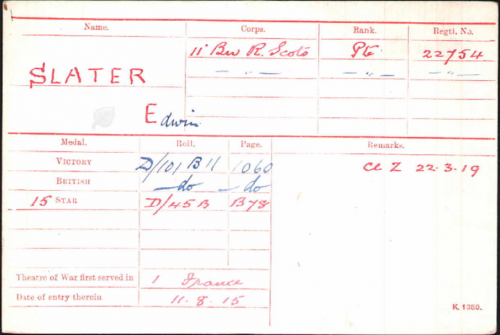 Name. Corps. Rank. Regtl. No.
11" Bn R. Scots Pte 22754
— " — — " — — " —
SLATER
Edwin
Medal. Roll. Page. Remarks.
VICTORY D/101 B11 1060 Cl Z 22.3.19
BRITISH —do —do
15 STAR D/45B B78
Theatre of War first served in 1 France
Date of entry therein 11.8.15
K. 1380.